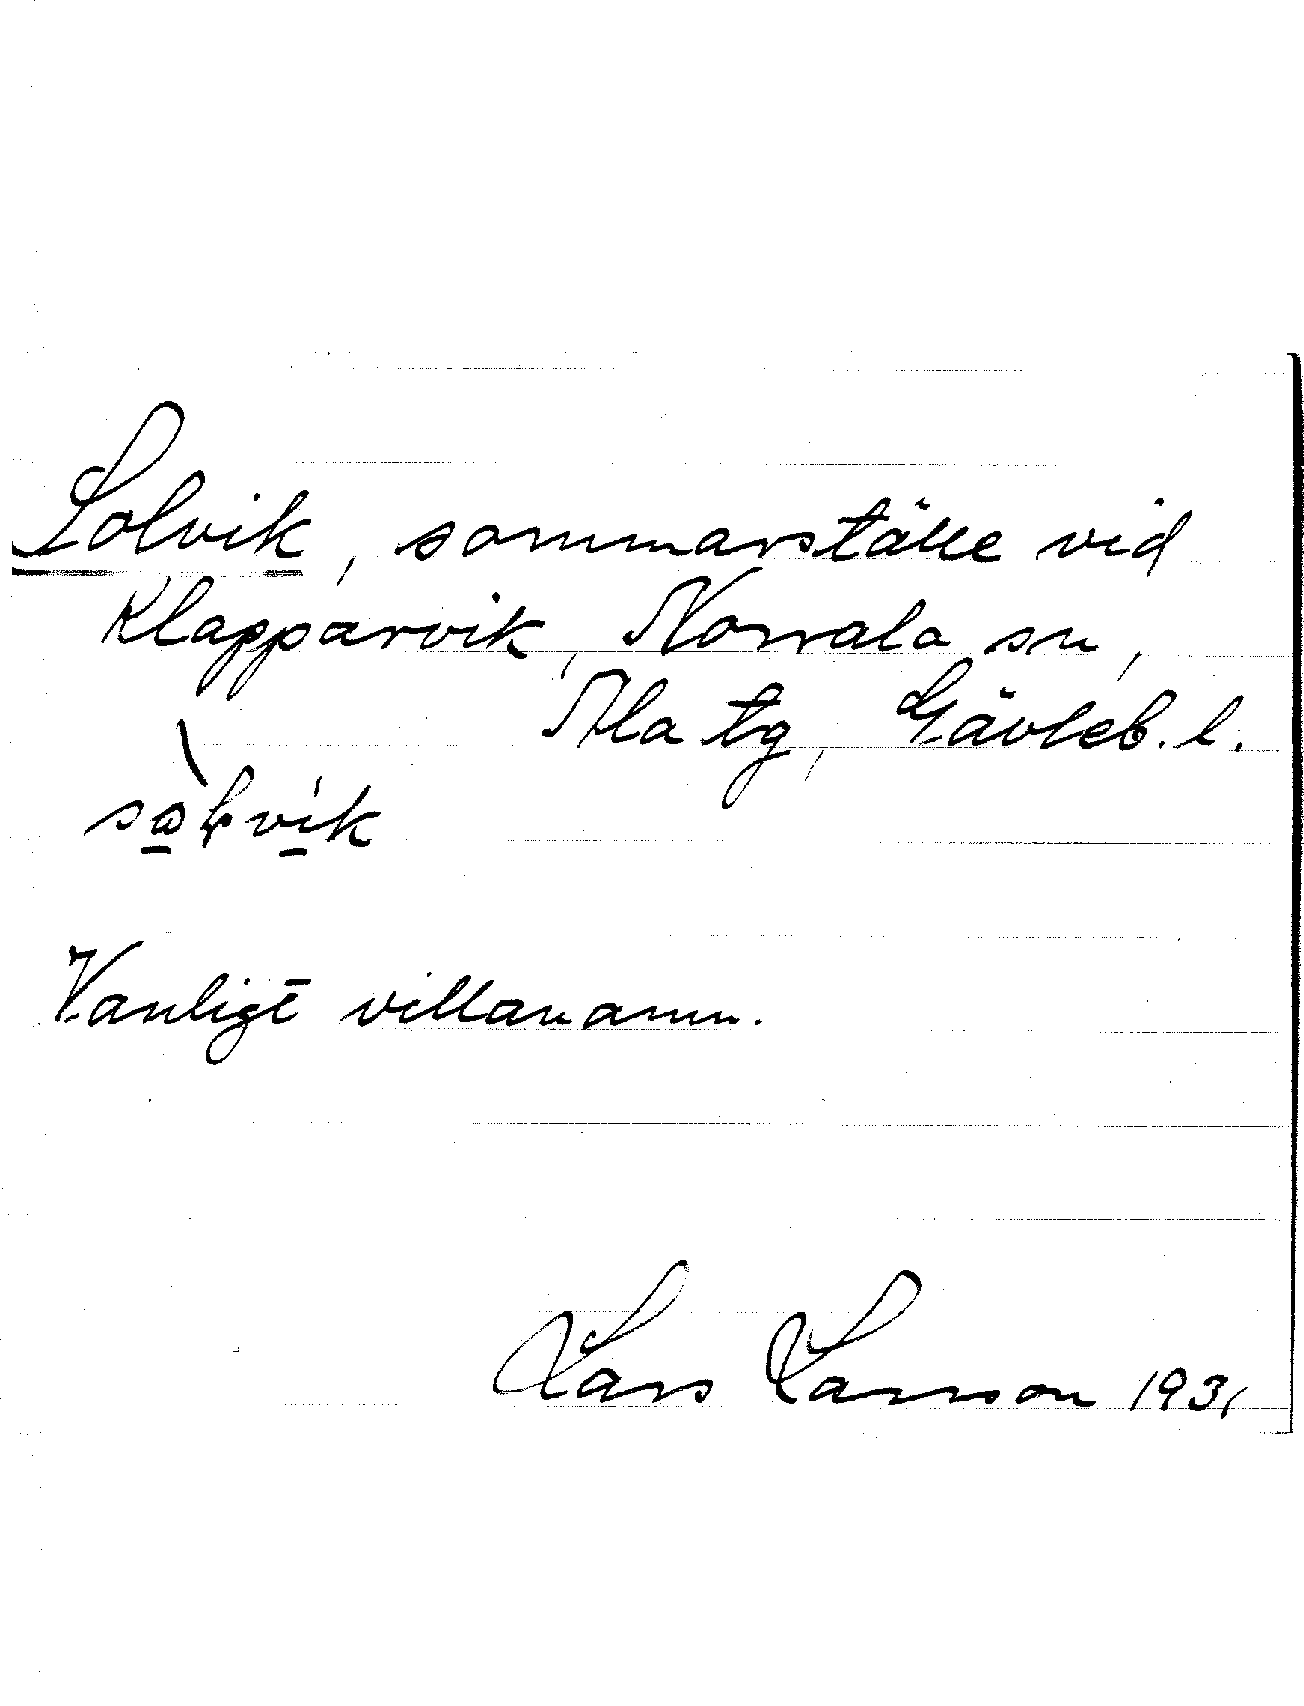 Solvik, sommarställe vid
Klapparvik, Norrala sn,
Ala tg, Gävleb. l.
Vanligt villanamn.
Lars Larsson 1931